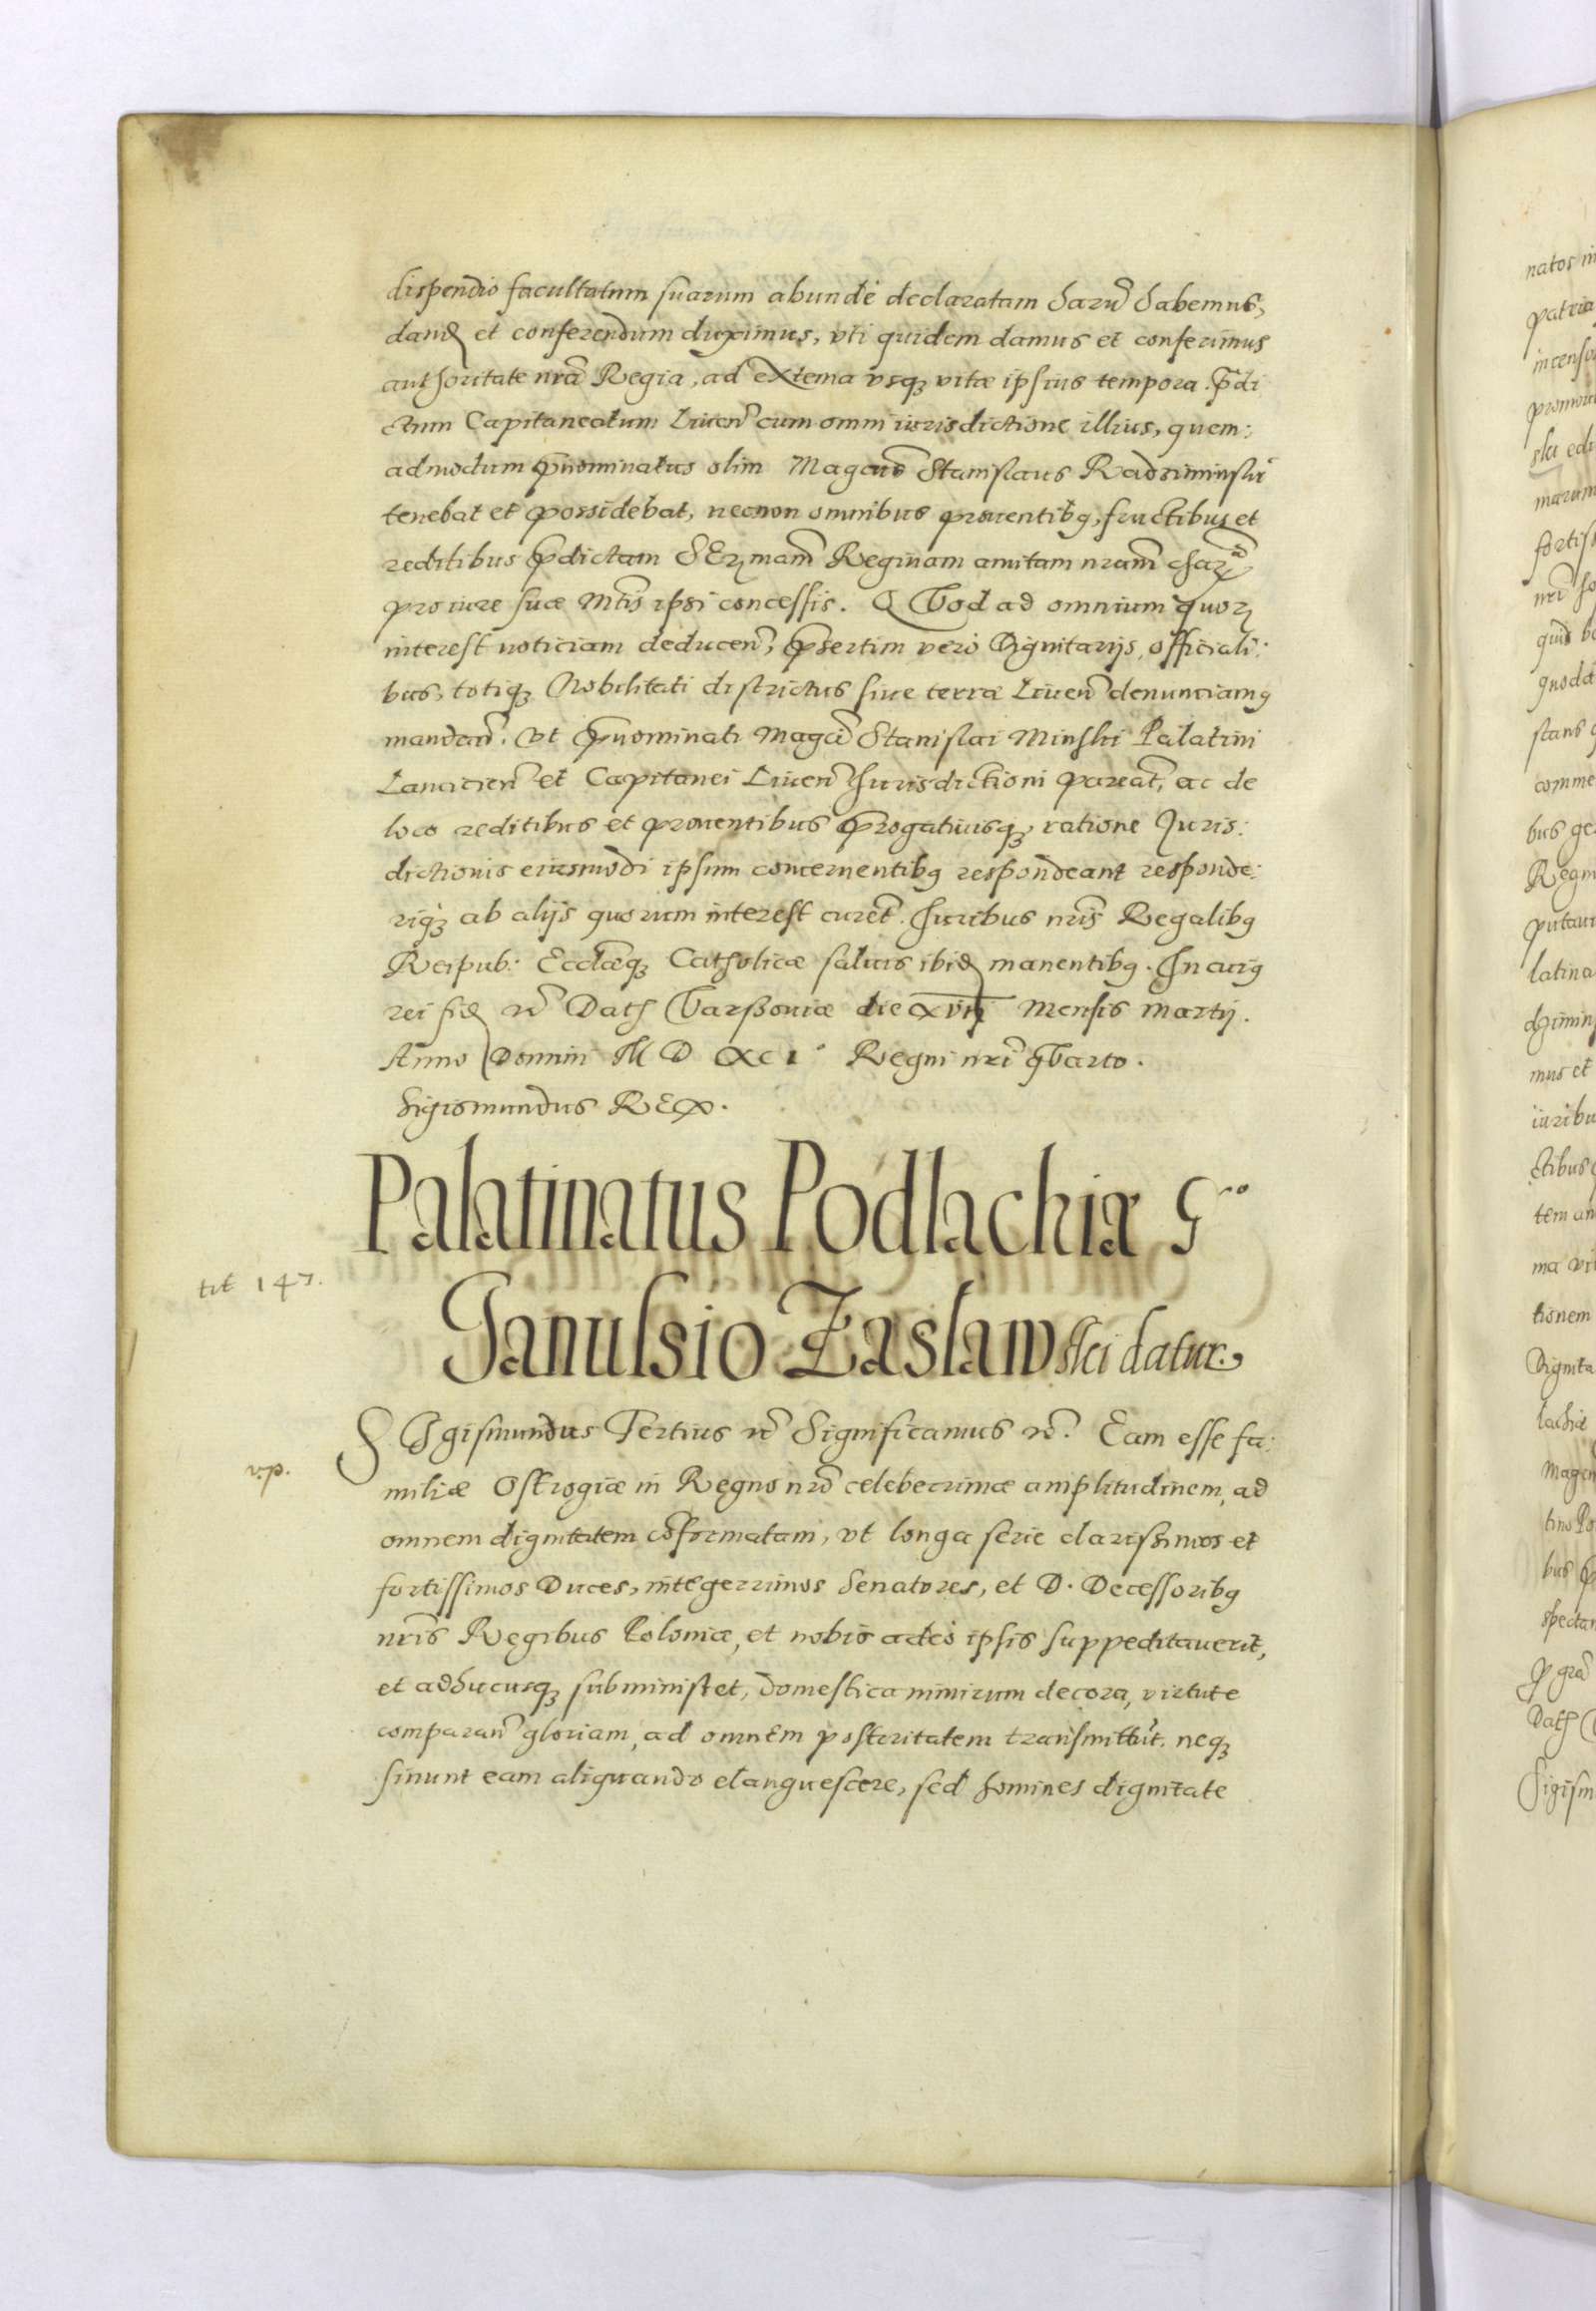 dispendio facultatum suarum abundè declaratam haru͂ habemus,
dand et conferendum duximus, vti quidem damus et conferimus
authoritate nr̃a Regia, ad extema vsq; vitæ ipsius tempora. P̃di
ctum Capitaneatum Liuen̄ cum omni iurisdictione illius, quem:
admodum p̃nominatus olim Magcus Stanislaus Radziminski
tenebat et possidebat, necnon omnibus prouentib9, fructibus et
reditibus p̃dictam SErmam̄ Reginam amitam nram̄ char
pro iure suæ Mtis ipsi concessis. QVod ad omnium quor
interest noticiam deducen̄, p̃sertim verò Dignitarijs, officiali:
bus, totiq; Nobilitati districtus siue terræ Liuen̄ denunciam9
mandan̄. Vt p̃nominati Magci Stanislai Minski Palatini
Lancicien̄ et Capitanei Liuen̄ Jurisdictioni pareat, ac de
loco reditibus et prouentibus p̃rogatiuisq; ratione Juris:
dictionis eiusmodi ipsum concernentib9 respondeant responde:
riq; ab alijs quorum interest curet. Juribus nr̃is Regalib9
Reipub: Ecclæq; Catholicæ saluis ibid manentib9. In cui9
rei fid &c̄ Dat Varsoviæ die xviij Mensis Martij.
Anno Domini M D XC I° Regni nr̃i qVarto.
Sigismundus REX.
Palatinatus Podlachiæ Gro
tit 147.
Janussio Zaslawskei datur.
SIgismundus Tertius &c̄ Significamus &c̄. Eam esse fa:
v.p.
miliæ Ostrogiæ in Regno nr̃o celeberrimæ amplitudinem, ad
omnem dignitatem cõformatam, vt longa serie clarissimos et
fortissimos Duces, integerrimos Senatores, et D. Decessorib9
nr̃is Regibus Poloniæ, et nobis adeò ipsis suppeditauerit,
et adhucusq; subministret, domestica nimirum decora, virtute
comparan̄ gloriam, ad omnem posteritatem transmittũt. neq;
sinunt eam aliquando elanguescere, sed homines dignitate